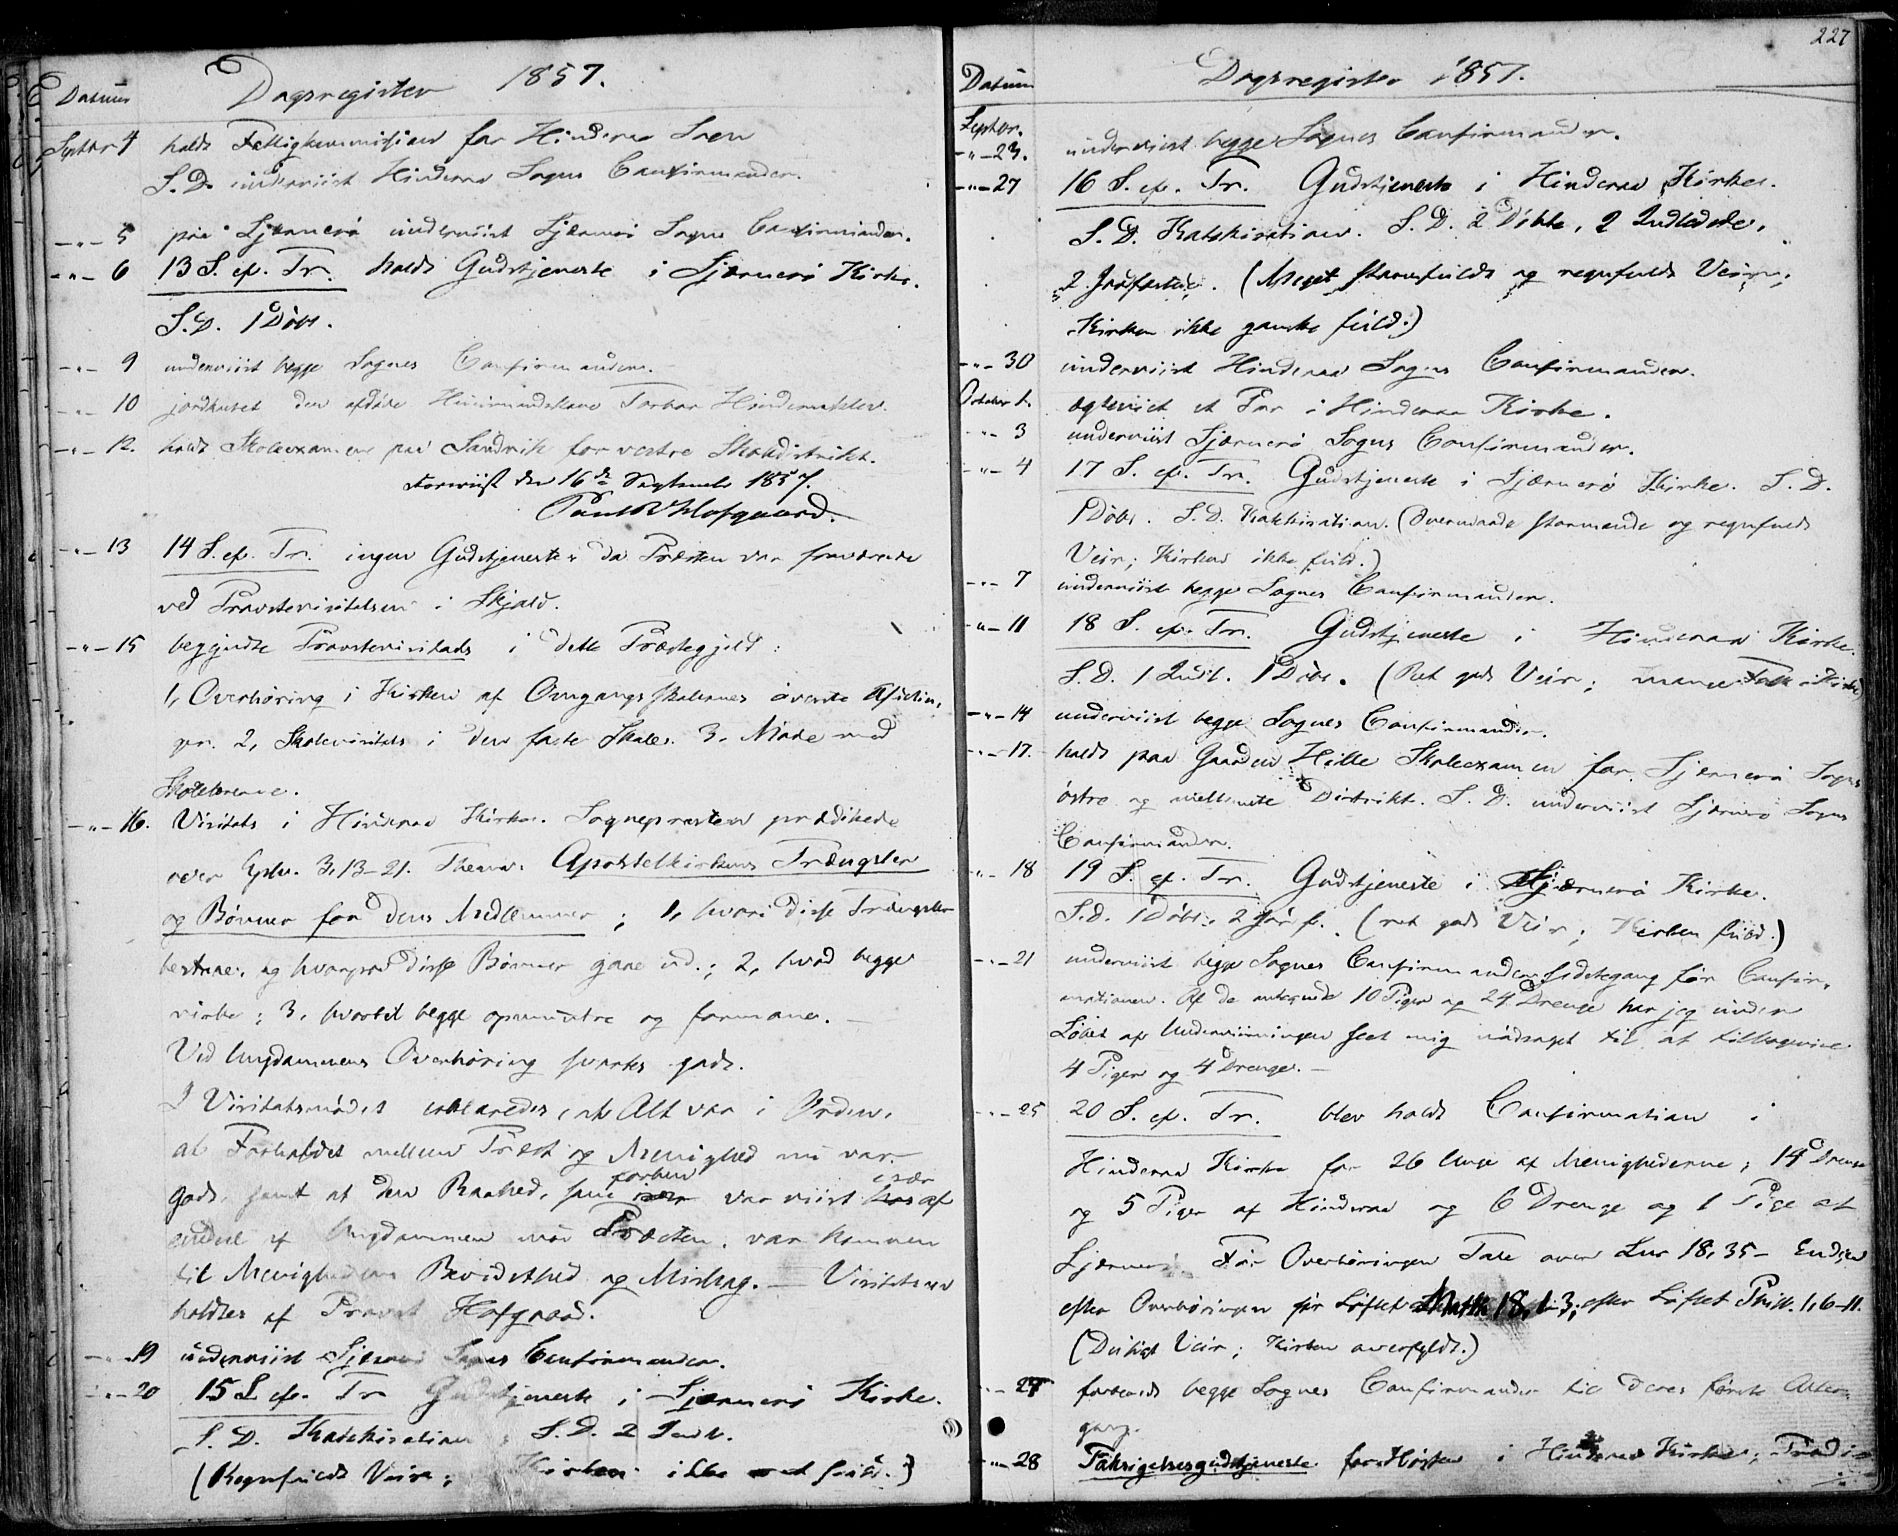 Datum Dagsregister 1857.
Septbr 4 holdt Fattigkommission for Hinderaa Sogn
S. D. underviist Hinderaa Sogns Confirmander.
-"- 5 paa Sjærnerø underviist Sjærnerø Sogns Confirmander.
-"- 6 13 S. ef. Tr. holdt Gudstjeneste i Sjærnerø Kirke.
S. D. 1 Døbt.
-"- 9 underviist begge Sognes Confirmander.
-"- 10 jordkastet den afdøde
-"- 12. holdt Skoleexamen paa Sandvik for vestre Skoledistrikt.
Foreviist den 16de September 1857.
Hofgaard.
-"- 13 14 S. ef. Tr. ingen Gudstjeneste, da Præsten var fraværende
ved Provstevisitatsen i Skjold.
-"- 15 begyndte Provstevisitads i dette Præstegjeld:
1, Overhøring i Kirken af Omgangsskolernes øverste Afdelin,
ger. 2, Skolevisitats i den faste Skole. 3. Møde med
Skolelærerne.
-"- 16. Visitats i Hinderaa Kirke. Sognepræsten prædikede
over Eph. 3,13-21. Thema: Apostelkirkens Trængsler
og Bønner for dens Medlemmer; 1, hvori disse Trængsler
bestaae, og hvorpaa disse Bønner gaae ud.; 2, hvad begge
virke; 3, hvortil begge opmuntre og formane. —
Ved Ungdommens Overhøring svartes godt.
I Visitatsmødet erklæredes, at Alt var i Orden,
at Forholdet mellem Præst og Menighed nu var
godt, samt at den Raahed, som forhen var viist især af
endeel af Ungdommen mod Præsten, var kommen
til Menighedens Bevidsthed og Mishag. — Visitatsen
holdtes af Provst Hofgaard.
-"- 19 underviist Sjærnerø Sogns Confirmander.
-"- 20 15 S. ef. Tr. Gudstjeneste i Sjærnerø Kirke.
S. D. Katekisation, S. D. 2 Indl.
(Regnfuldt Veir; Kirken ikke ret fuld.)
227
Datum Dagsregister 1857.
Septbr.
-"- 23. underviist begge Sognes Confirmander.
-"- 27 16 S. ef. Tr. Gudstjeneste i Hinderaa Kirke.
S. D. Katekisation. S. D. 2 Døbte, 2 Indledede,
2 Jordfæstede. (Meget stormfuldt og regnfuldt Veir;
Kirken ikke ganske fuld.)
-"- 30 underviist Hinderaa Sogns Confirmander.
October 1. ægteviet et Par i Hinderaa Kirke.
-"- 3 underviist Sjærnerø Sogns Confirmander.
-"- 4 17 S. ef. Tr. Gudstjeneste i Sjærnerø Kirke. S. D.
1 Døbt. S. D. Katekisation. (Overmaade stormende og regnfuldt
Veir; Kirken ikke fuld.)
-"- 7 underviist begge Sognes Confirmander.
-"- 11 18 S. ef. Tr. Gudstjeneste i Hinderaa Kirke.
S. D. 1 Indl. 1 Døbt. (Ret godt Veir; mange Folk i Kirke)
-"- 14 underviist begge Sognes Confirmander.
-"- 17. holdt paa Gaarden Hille Skoleexamen for Sjærnerø Sogns
østre og mellemste Distrikt. S. D. underviist Sjærnerø Sogns
Confirmander.
-"- 18 19 S. ef. Tr. Gudstjeneste i Sjærnerø Kirke.
S. D. 1 Døbt, 2 Jordf. (ret godt Veir; Kirken fuld.)
-"- 21 underviist begge Sognes Confirmander sidstegang før Confir,
mationen. Af de antegnede 10 Piger og 24 Drenge har jeg under
Løbet af Underviisningen seet mig nødsaget til at tilbagevise
4 Piger og 4 Drenge. —
-"- 25 20 S. ef. Tr. blev holdt Confirmation i
Hinderaa Kirke for 26 Unge af Menighederne, 14 Drenge
og 5 Piger af Hinderaa og 6 Drenge og 1 Pige af
Sjærnerø. Før Overhøringen Tale over Luc 18,35- Enden
efter Overhøringen før Løftet Matth 18,1-3; efter Løftet Phil. 1,6-11.
(Deiligt Veir; Kirken overfyldt.)
-"- 27 forberedt begge Sognes Confirmander til deres første Alter,
gang.
-"- 28 Taksigelsesgudstjeneste for Høsten i Hinderaa Kirke; Prædi=